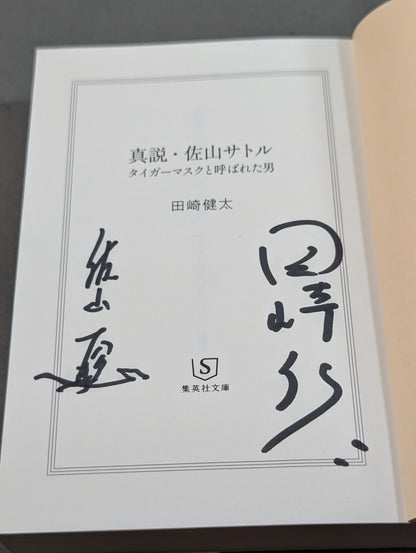 真説・佐山サトル
タイガーマスクと呼ばれた男
田崎健太
佐山
聡
田崎
S
集英社文庫